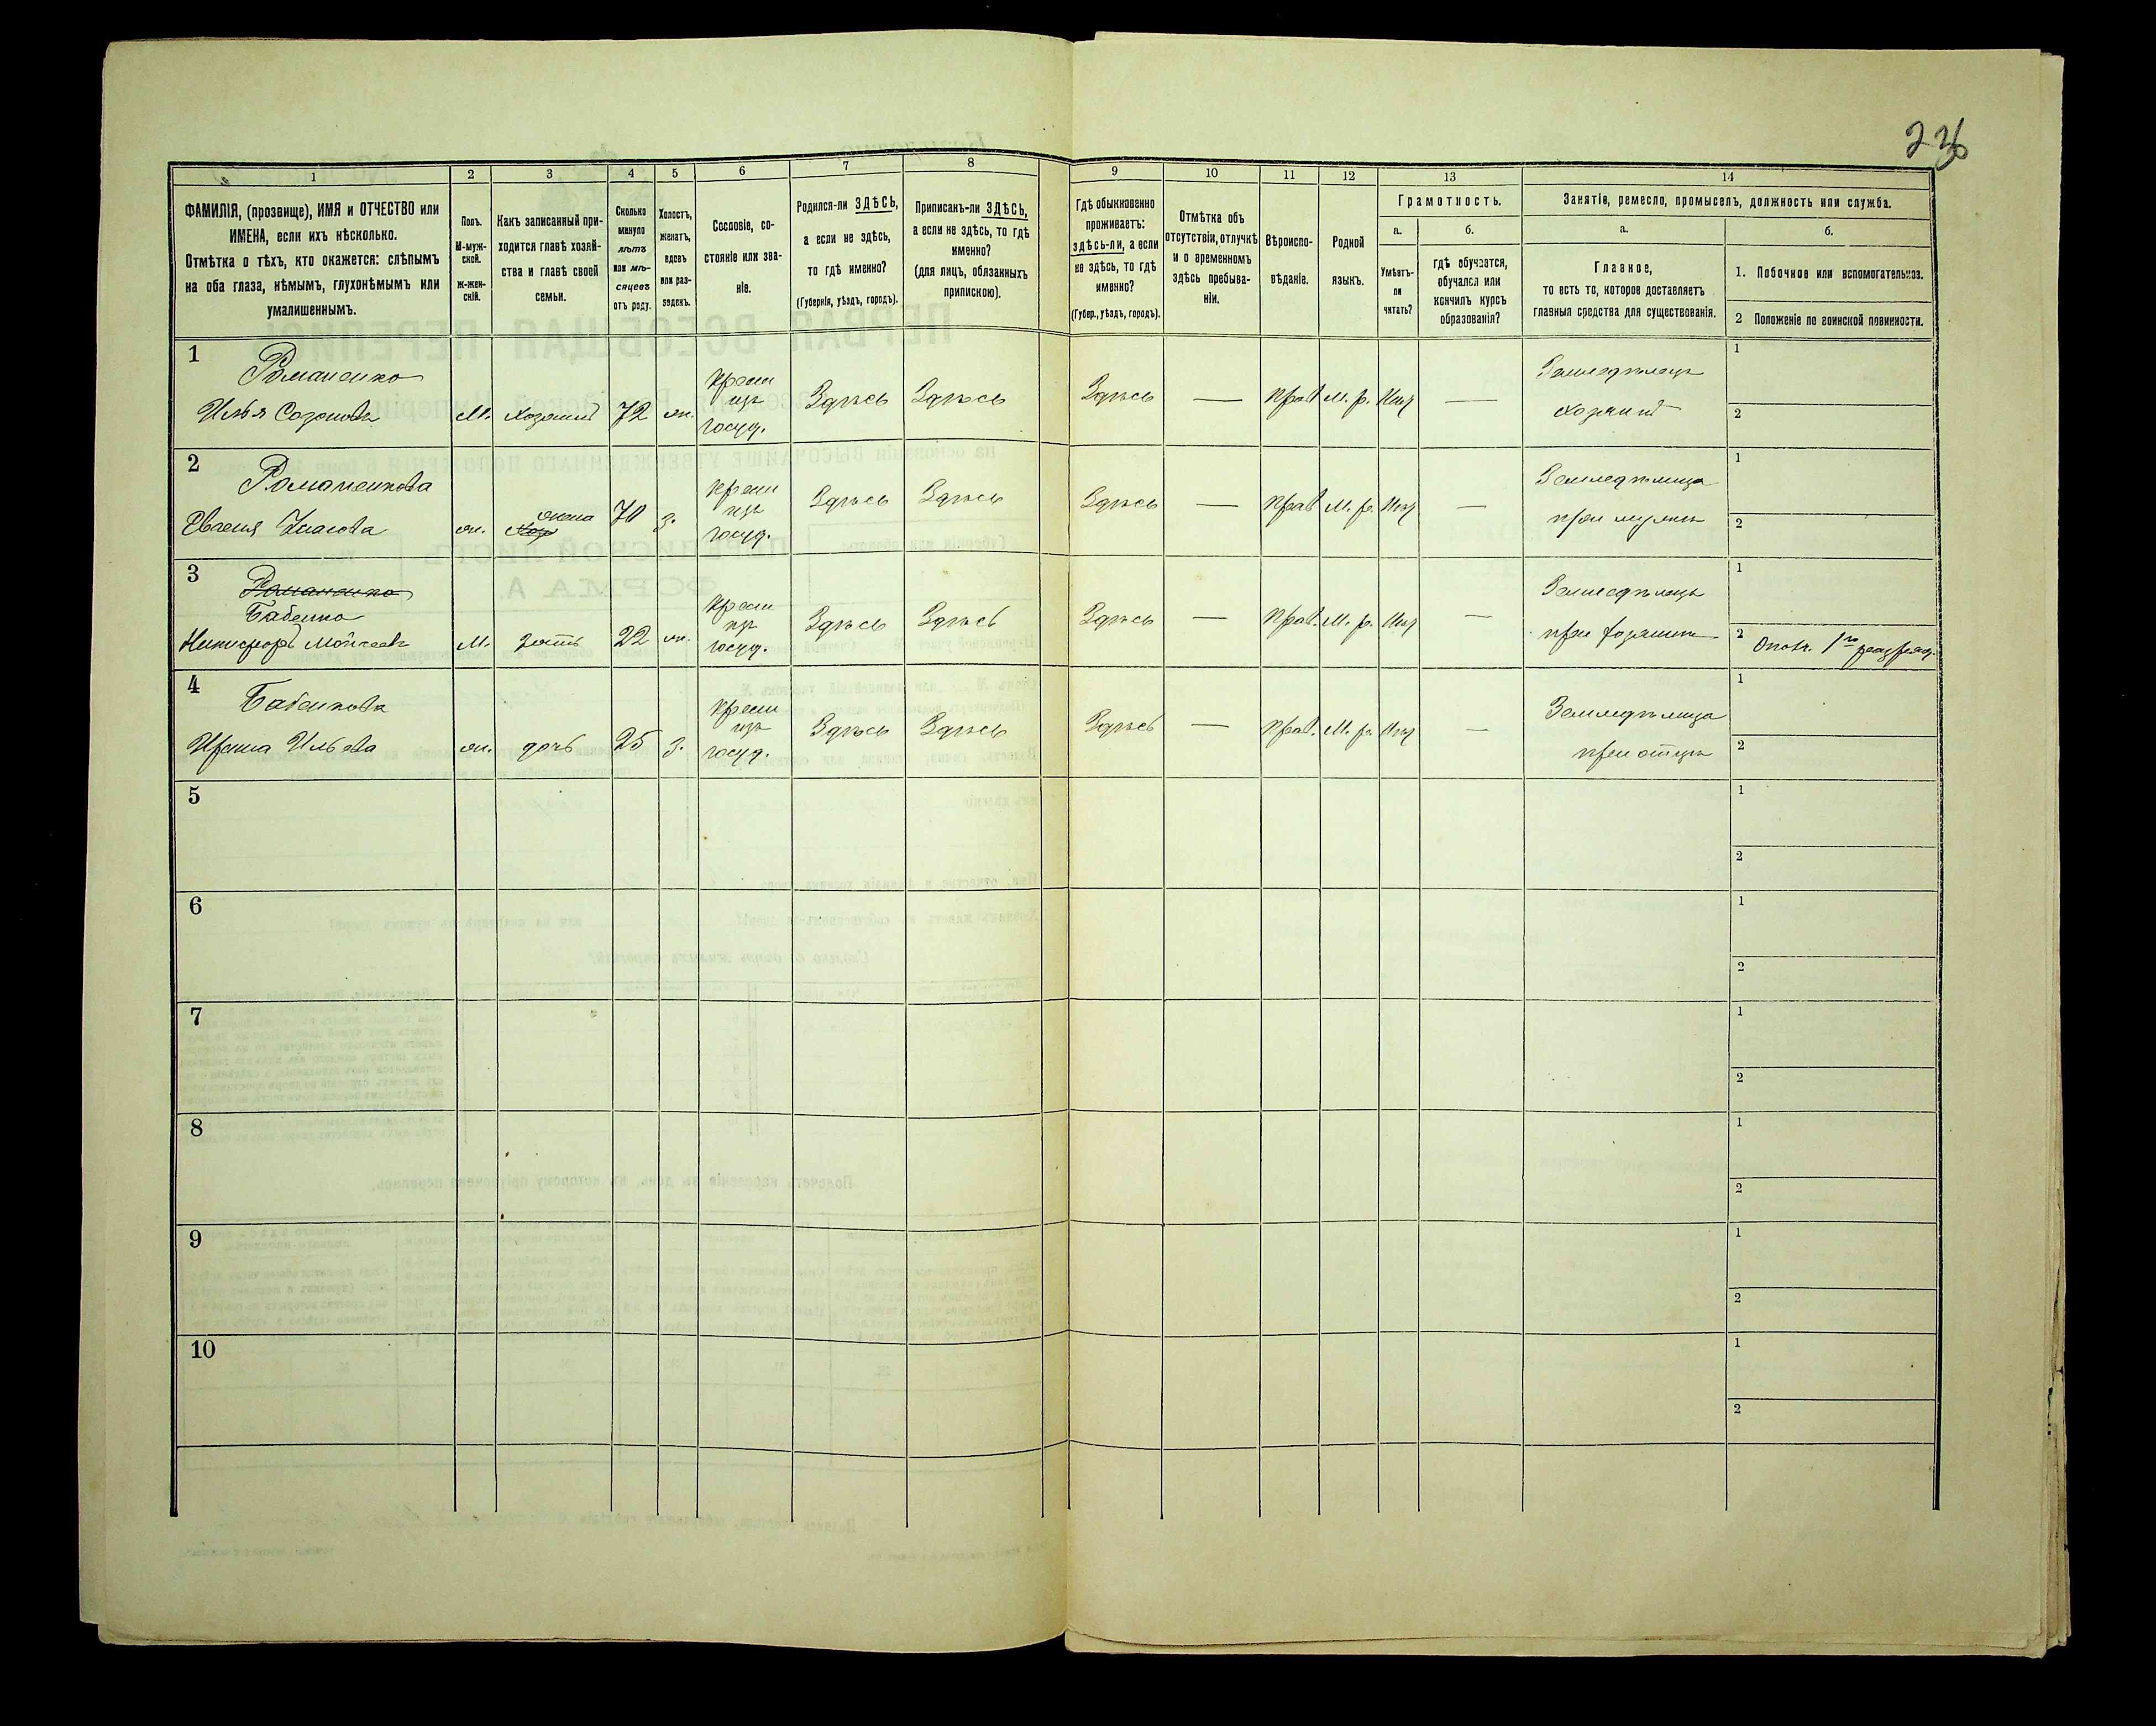 226
1
2
3
4
5
6
7
8
9
10
11
12
13
14
ФАМИЛІЯ, (прозвище), ИМЯ и ОТЧЕСТВО или
ИМЕНА, если ихъ нѣсколько.
Отмѣтка о тѣхъ, кто окажется: слѣпымъ
на оба глаза, нѣмымъ, глухонѣмымъ или
умалишеннымъ.
Полъ.
М-муж-
ской.
Ж-жен-
скій.
Какъ записанный при-
ходится главѣ хозяй-
ства и главѣ своей
семьи.
Сколько
минуло
лѣтъ
или мѣ-
сяцевъ
отъ роду.
Холостъ,
женатъ,
вдовъ
или раз-
веденъ.
Сословіе, со-
стояніе или зва-
ніе.
Родился-ли ЗДѢСЬ,
а если не здѣсь,
то гдѣ именно?
(Губернія, уѣздъ, городъ).
Приписанъ-ли ЗДѢСЬ,
а если не здѣсь, то гдѣ
именно?
(для лицъ, обязанныхъ
припискою).
Гдѣ обыкновенно
проживаетъ:
здѣсь-ли, а если
не здѣсь, то гдѣ
именно?
(Губер., уѣздъ, городъ).
Отмѣтка объ
отсутствіи, отлучкѣ
и о временномъ
здѣсь пребыва-
ніи.
Вѣроиспо-
вѣданіе.
Родной
языкъ.
Грамотность.
а.
Умѣетъ-
ли
читать?
б.
гдѣ обучается,
обучался или
кончилъ курсъ
образованія?
Занятіе, ремесло, промыселъ, должность или служба.
а.
Главное,
то есть то, которое доставляетъ
главныя средства для существованія.
б.
1. Побочное или вспомогательное.
2 Положеніе по воинской повинности.
1
Романенко
Илья Созоновъ
М. хозяинъ 72 ж.
крест
изъ
госуд.
Здѣсь Здѣсь Здѣсь — прав. М. р. Нѣт —
Земледѣлецъ
хозяинъ
1
2
2
Романенкова
Евгенія Власова
ж.
хоз
жена
70 з.
крест
изъ
госуд.
Здѣсь Здѣсь Здѣсь — прав М. р. Нѣт —
Земледѣлица
при мужѣ
1
2
3
Романенко
Бабенко
Никифоръ Мойсеевъ
М. зять 22 ж.
крест
изъ
госуд.
Здѣсь Здѣсь Здѣсь — прав. М. р. Нѣт —
Земледѣлецъ
при хозяинѣ
1
2 Ополч. 1го разряд.
4
Бабенкова
Ирина Ильева
ж. дочь 25 з.
крест
изъ
госуд.
Здѣсь Здѣсь Здѣсь — прав. М. р. Нѣт —
Земледѣлица
при отцѣ
1
2
5
1
2
6
1
2
7
1
2
8
1
2
9
1
2
10
1
2